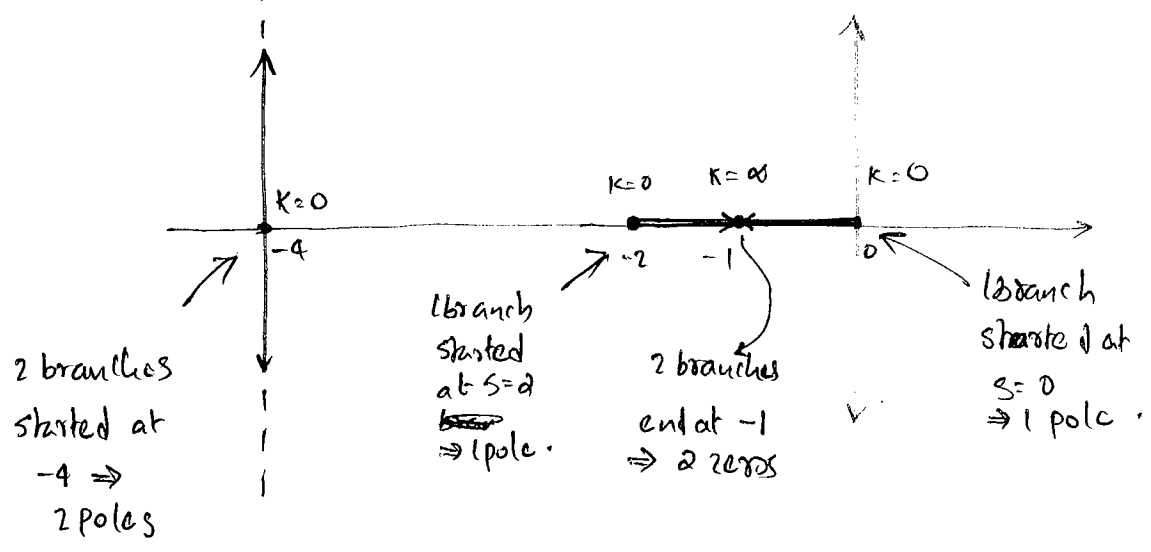 K=0
K=∞
K=0
K=0
-4
-2
-1
0
2 branches
started at
-4 ⇒
2 poles
1branch
started
at s=2
⇒ 1pole.
2 branches
end at -1
⇒ 2 zeros
1branch
started at
s=0
⇒ 1 pole.